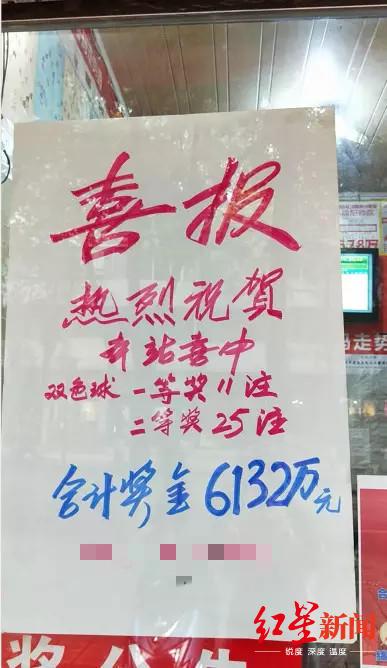 喜报
热烈祝贺
本站喜中
双色球一等奖11注
二等奖25注
合计奖金6132万元
红星新闻
锐度 深度 温度